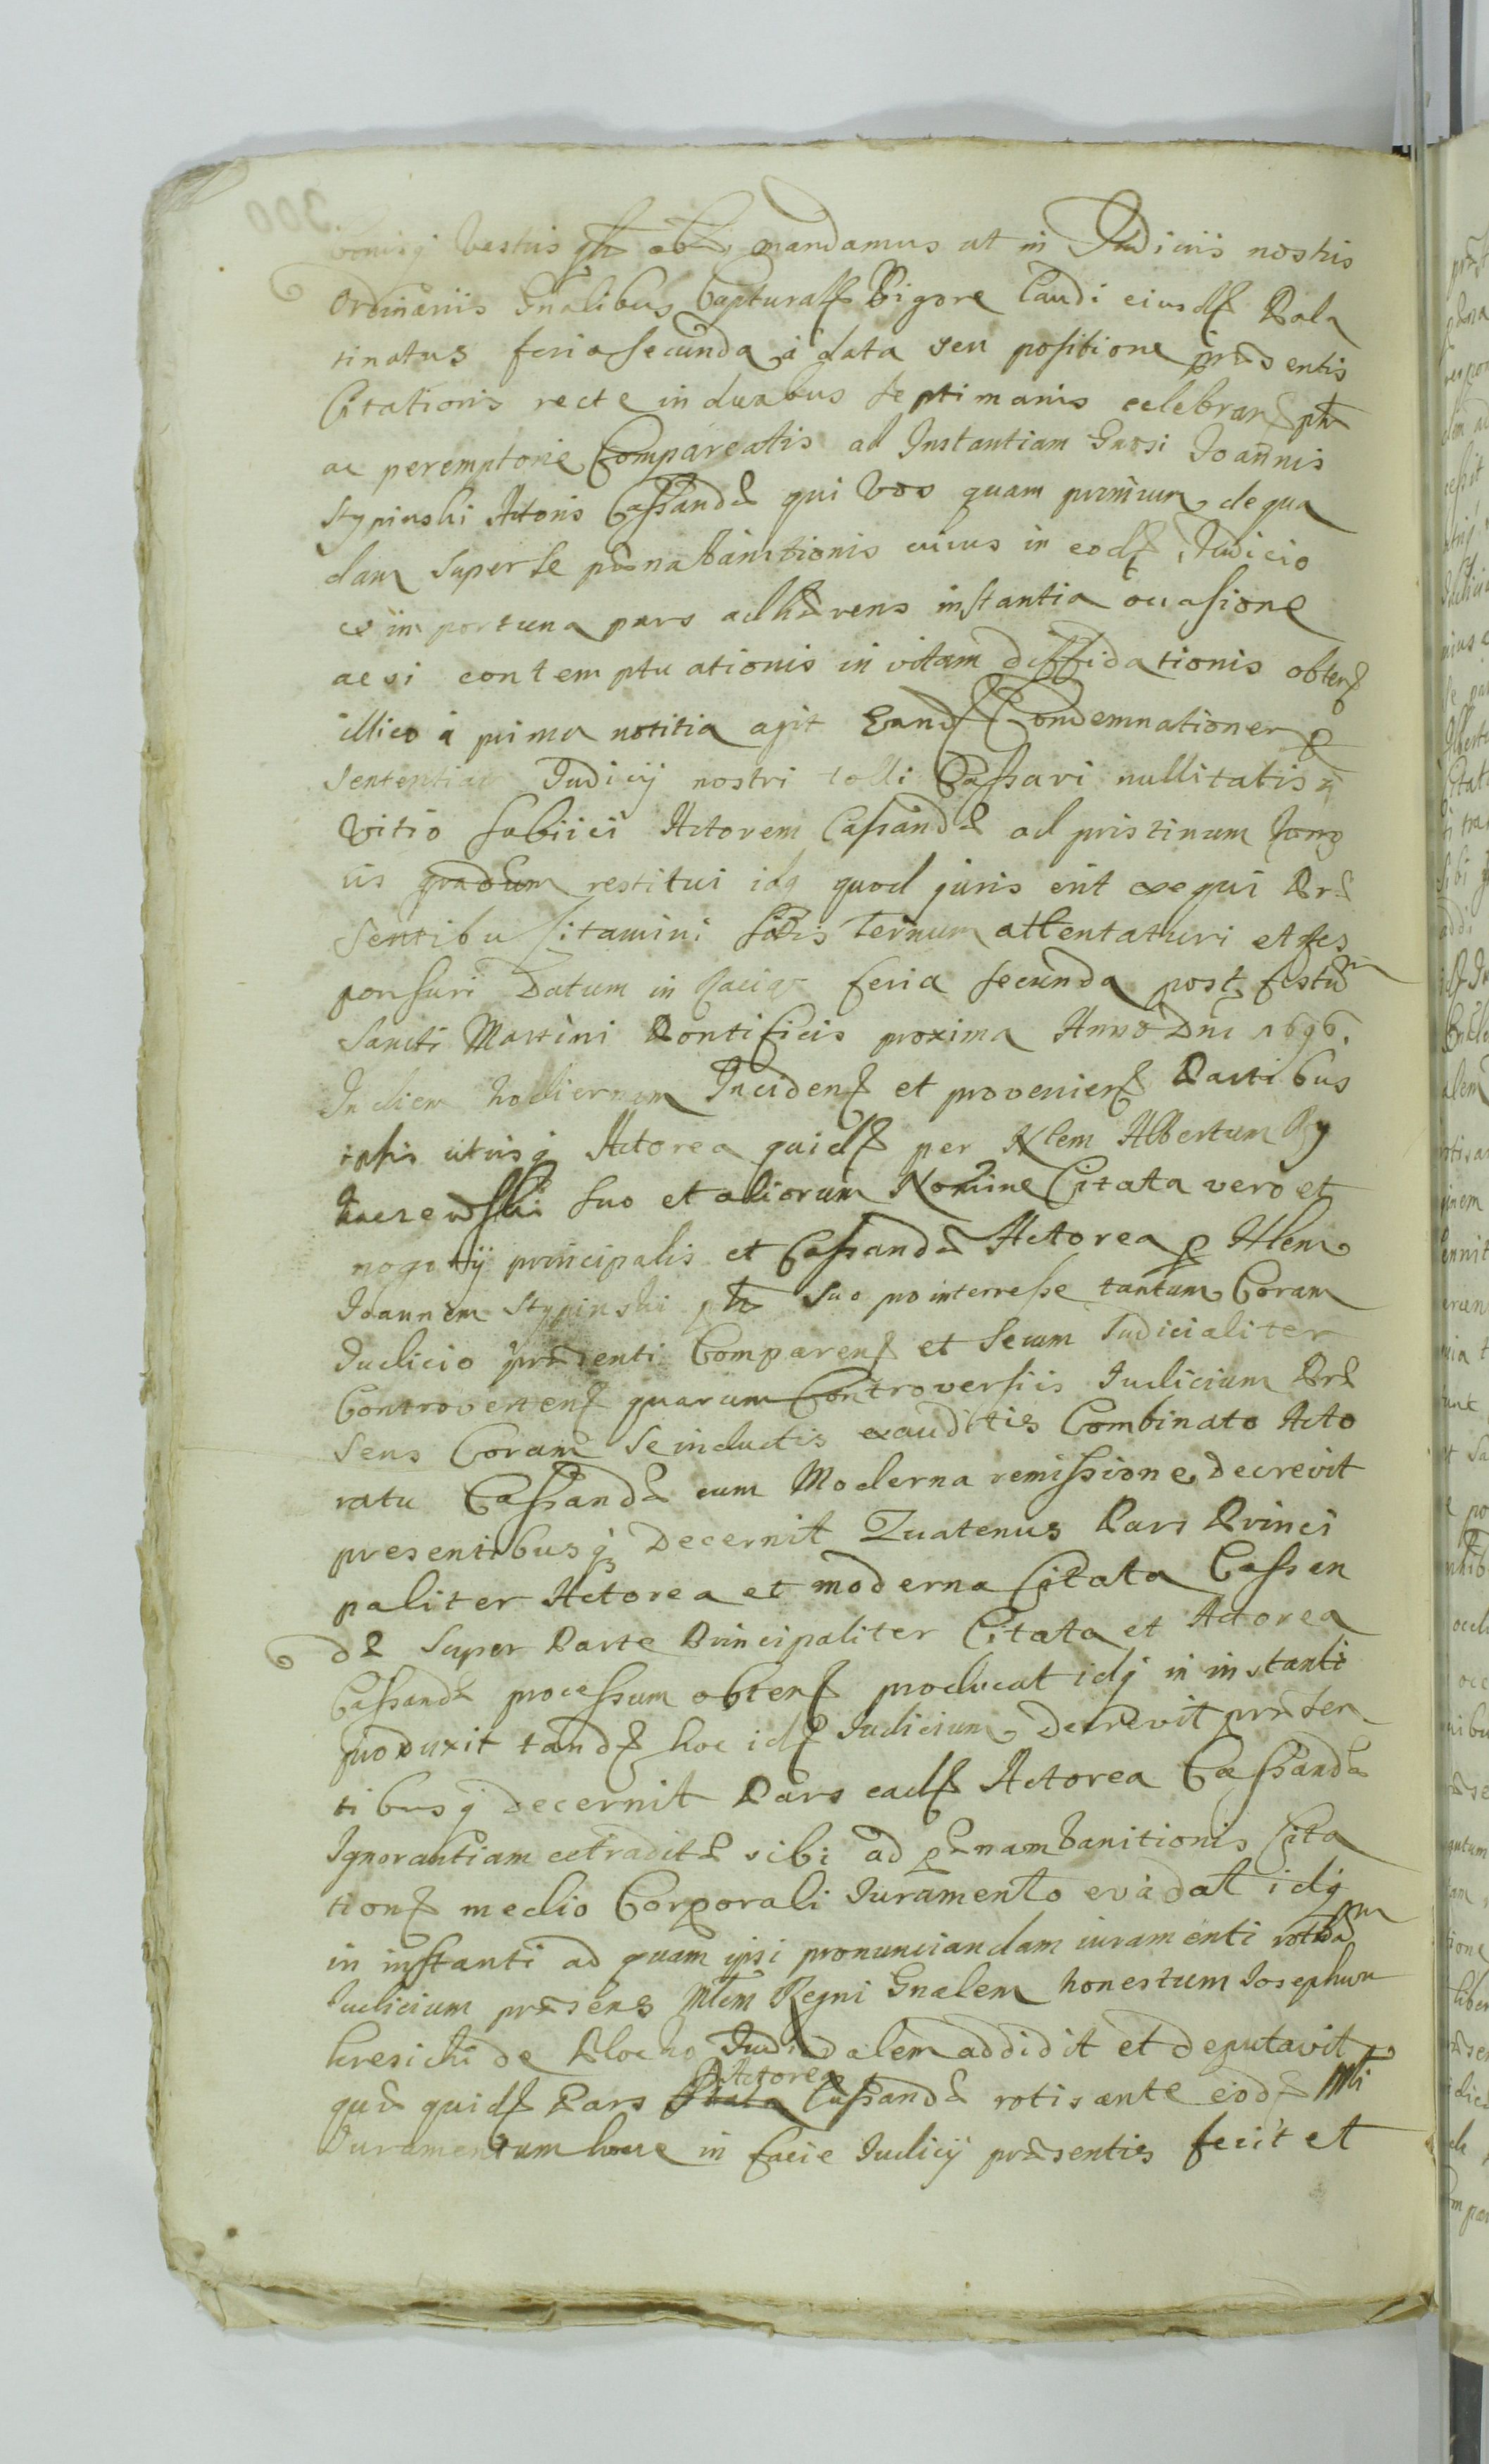 bonisq vestris mandamus ut in Judiciis nostris
Ordinariis Gnalibus Capturaℓ Vigore Laudi eiusdℓ Pala
tinatus feria secunda a data seu positione præsentis
Citationis recte in duabus septimanis celebranℓ
ac peremptorie Compareatis ad Instantiam Gnosi Joannis
Stypinski Actoris Cassandæ qui Vos quam primum de qua
dam super se pæna bannitionis cuius in eodℓ Judicio
ex importuna pars adhærens instantia occasione
acsi contemptu ationis in vitam diffidationis obtenℓ
illico a prima notitia agit Eandℓ Condemnationem et
Sententiam Judicij nostri tolli Cassari nullitatisq
Vitio subiici Actorem Cassandæ ad pristinum
iis gradum restitui idq quod juris erit exequi Præ
sentibus Citamini sitis Ternum attentaturi et res
ponsuri Datum in feria secunda post festum
Sancti Martini Pontificis proxima Anno Dni 1696.
In diem hodiernam Incidenℓ et provenienℓ Partibus
ipsis utrisq Actorea quidℓ per Nlem Albertum
suo et aliorum Nomine Citata vero et
nogotij principalis et Cassandæ Actorea p Nlem
Joannem Stypinski suo pro interresse tantum Coram
Judicio præsenti Comparenℓ et secum Judicialiter
Controvertenℓ quarum Controversiis Judicium Præ
sens Coram se inductis exauditis Combinato Acto
ratu Cassandæ cum Moderna remissione decrevit
presentibusq Decernit Quatenus Pars Princi
paliter Actorea et moderna Citata Cassan
dæ super Parte Principaliter Citata et Actorea
Cassandæ processum obtenℓ producat idq in instanti
produxit tandℓ hoc idℓ Judicium decrevit præsen
tibusq decernit Pars eadℓ Actorea Cassandæ
Ignorantiam extraditæ sibi ad pænam banitionis Cita
tionℓ medio Corporali Juramento evadat idq
in instanti ad quam ipsi pronunciandam iuramenti rotham
Judicium præsens Mlem Regni Gnalem honestum Josephum
de Plocko Judicialem addidit et deputavit
quæ quidℓ Pars Citata Actorea Cassandæ rotisante eodℓ Mli
Juramentum hocce in facie Judicij præsentis fecit et